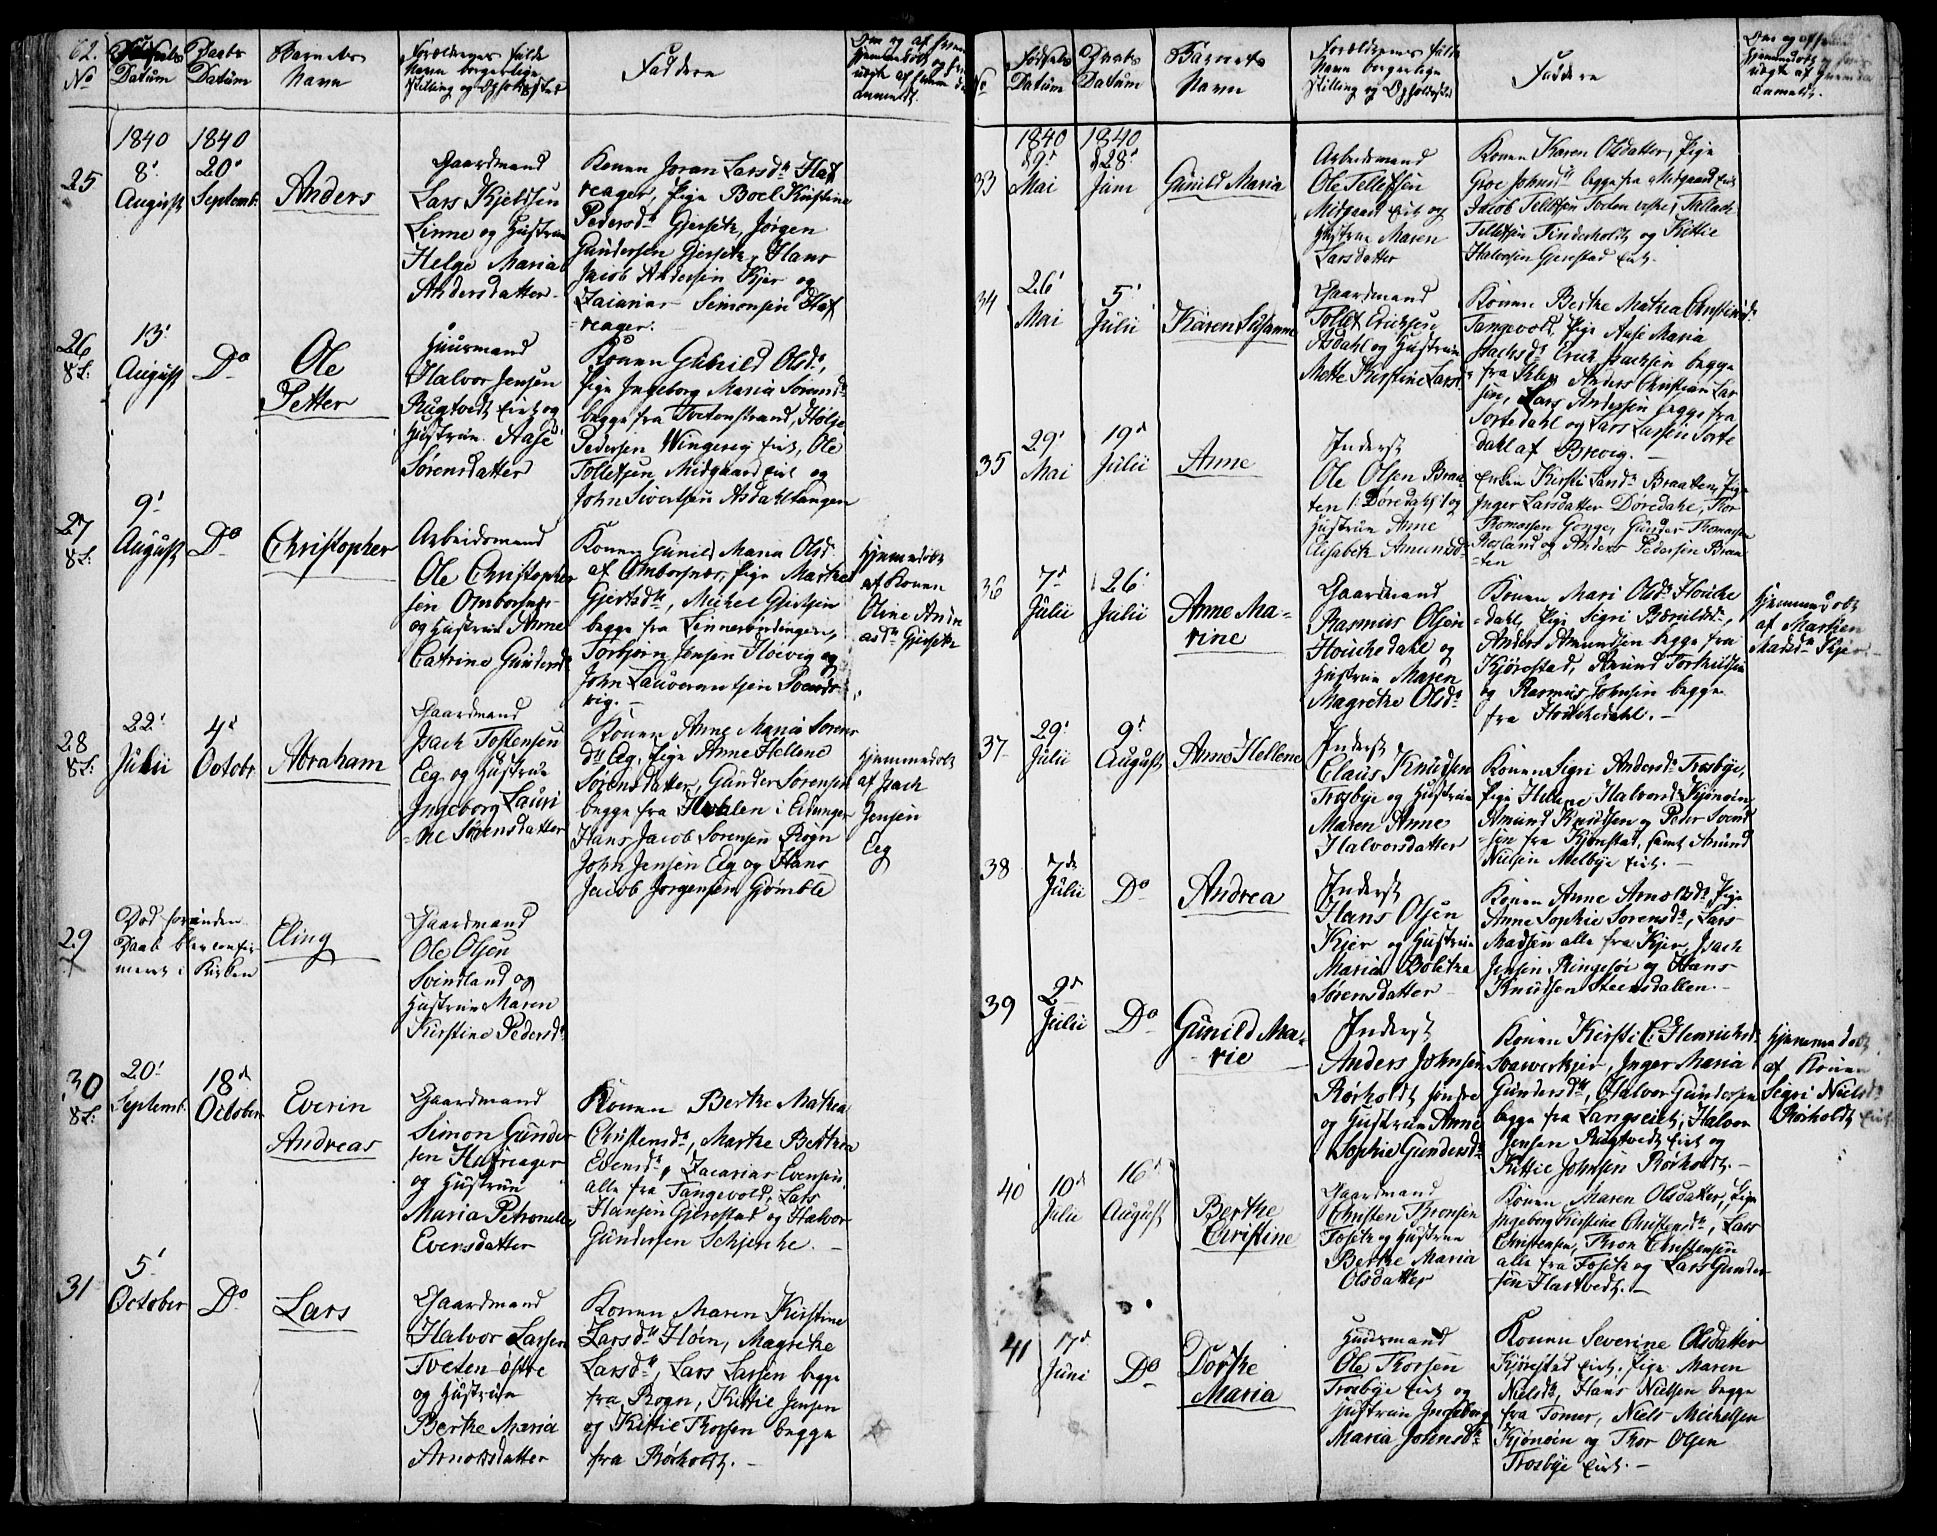 62.
No
Fødsels Datum
Daabs Datum
Barnets Navn
Forældrenes fulde Navn borgerlige Stilling og Opholdssted
Faddere
Om og af hvem hjemmedøbt
1840 1840
25
8' August
20' Septemb.
Anders
Gaardmand
Lars Kjeldsen
Linne og Hustrue
Helge Maria
Andersdatter
Konen Joran Larsdr Haf
reager, Pige Boel Kirstine
Pedersdr Gjersetr, Jørgen
Gundersen Gjersetr, Hans
Jacob Andersen Kjer og
Zacarias Simonsen Haf
reager.
26
13' August
Do
Ole
Petter
Huusmand
Halvor Jensen
Rugtvedt Eiet og
Hustrue Aase
Sørensdatter
Konen Gunild Olsdr,
Pige Ingeborg Maria Sørensdr
begge fra Tvetenstrand, Holje
Pedersen Wingereig Eiet, Ole
Tollefsen Midgaard Eiet og
John Sivertsen Asdahltangen
27
9' August
Do
Christopher
Arbeidsmand
Ole Christopher
sen Omborsnæs
og Hustrue Anne
Catrine Gundersdr
Konen Gunild Maria Olsdr
af Omborsnæs, Pige Marthe
Gjertsdr, Michel Gjertsen
begge fra
Torbjørn Jensen
John Lauverantsen
vig.
Hjemmedøbt
af Konen
Oline
Gjersetr
28
22' Julii
4d Octobr.
Abraham
Gaardmand
Isach Tostensen
Eeg og Hustrue
Ingeborg Lauri
ne Sørensdatter
Konen Anne Maria Sørens
dr Eeg, Pige Anne Hellene
Sørensdatter, Gunder Sørensen
begge fra Hvalen i Eidanger
Hans Jacob Sørensen Rogn
John Jensen Eeg og Hans
Jacob Jørgensen Grømble
Hjemmedøbt
af Isach
Jensen
Eeg
29
Død forinden
Daab blev confir
meret i Kirken
Eling
Gaardmand
Ole Olsen
Svindland og
Hustrue Maren
Kirstine Pedersdr
30
20' Septemb.
18d October
Everin
Andreas
Gaardmand
Simon Gunder
sen Hafreager
og Hustrue
Maria Petronelle
Evensdatter
Konen Berthe Mathea
Christensdr, Marthe Berthea
Evensdr, Zacarias Evensen
alle fra Tangevold, Lars
Hansen Gjerestad og Halvor
Gundersen Schjerche.
31
5' October
Do
Lars
Gaardmand
Halvor Larsen
Tveten østre
og Hustrue
Berthe Maria
Arnoldsdatter
Konen Maren Kirstine
Larsdr Høin, Magrethe
Larsdr, Lars Larsen begge
fra Rogn, Kittil Jensen
og Kittil Thorsen begge
fra Rørholdt.
No
Fødsels Datum
Daabs Datum
Barnets Navn
Forældrenes fulde Navn borgerlige Stilling og Opholdssted
Faddere
1840 1840
33
9d Mai
28' Juni
Gunild Maria
Arbeidsmand
Ole Tellefsen
Midgaard Eiet og
Hustrue Maren
Larsdatter
Konen Karen Olsdatter, Pige
Groe Johnsdr begge fra Midgaard Eiet
Jacob Tellefsen
Tellefsen Finderholdt og Kittie
Halvorsen Gjerestad Eiet.
34
26' Mai
5' Julii
Karen Susanne
Gaardmand
Tollef Erichsen
Asdahl og Hustrue
Mette Kirstine Larsdr
Konen Berthe Mathea Christensdr
Tangevold, Pige Anne Maria
Isachsdr Erich Isachsen begge
fra Anders Christian Lar
sen, Lars Andersen begge fra
Tortedahl og Lars Larsen Torte
dahl af Brevig.
35
29' Mai
19d Julii
Anne
Inderst
Ole Olsen Braa
ten /: Doredahl :/ og
Hustrue Anne
Elisabeth Amundsdr
Enken Kirsti Braatten, Pige
Inger Larsdatter Døredahl, Thor
Thomassen Gonge, Gunder Thomassen
og Anders Pedersen Braa
ten
36
7d Julii
26' Julii
Anne Ma-
rine
Gaardmand
Rasmus Olsen
Houchedahl og
Hustrue Maren
Magrethe Olsdr
Konen Mari Olsdr Houche
dahl, Pige Sigri
Anders Amundsen begge fra
Kjørestad, Amund Torkildsen
og Rasmus Johnsen begge
fra Houchedahl.
Hjemmedøbt
af Marthen
Madsdr Kjer
37
29' Julii
9d August
Anne Hellene
Inderst
Claus Knudsen
Trosbye og Hustrue
Maren Anne
Halvorsdatter
Konen Sigri Andersdr Trosbye,
Pige Hellene Halvorsdr Kjønøin,
Amund Knudsen og Peder Svend
sen fra Kjønstad, samt Amund
Nielsen Melbye Eiet.
38
7de Julii
Do
Andrea
Inderst
Hans Olsen
Kjer og Hustrue
Maria Bolethe
Sørensdatter
Konen Anne Arnoldsdr, Pige
Anne Sophie Sørensdr, Lars
Madsen alle fra Kjer, Isach
Jensen Ringesøe og Hans
Knudsen Steensdallen.
39
2d Julii
Do
Gunild Ma-
rie
Inderst
Anders Johnsen
Rørholdt søndre
og Hustrue Anne
Sophie Gundersdr
Konen Kirsti C. Henrichsdr
Inger Maria
Gundersdr, Halvor Gundersen
begge fra Langøeiet, Halvor
Jensen Rugtvedt Eiet og
Kittie Johnsen Rørholdt.
Hjemmedøbt
af Konen
Sigri Nielsdr
Rørholdt Eiet
40
10d Julii
16d August
Berthe
Christine
Gaardmand
Christen Thronsen
Fosetr og Hustrue
Berthe Maria
Olsdatter
Konen Maren Olsdatter, Pige
Ingeborg Kirstine Christensdr, Lars
Christensen, Thron Christensen
alle fra Fosetr og Lars Gunder
sen Hastvedt.
41
17d Juni
Do
Dorthe
Maria
Huusmand
Ole Thorsen
Trosbye Eiet og
Hustrue Ingeborg
Maria Johnsdr
Konen Severine Olsdatter
Kjønstad Eiet, Pige Maren
Nielsdr, Hans Nielsen begge
fra Tomer, Niels Michelsen
Kjønøin og Thor Olsen
Trosbye Eiet.